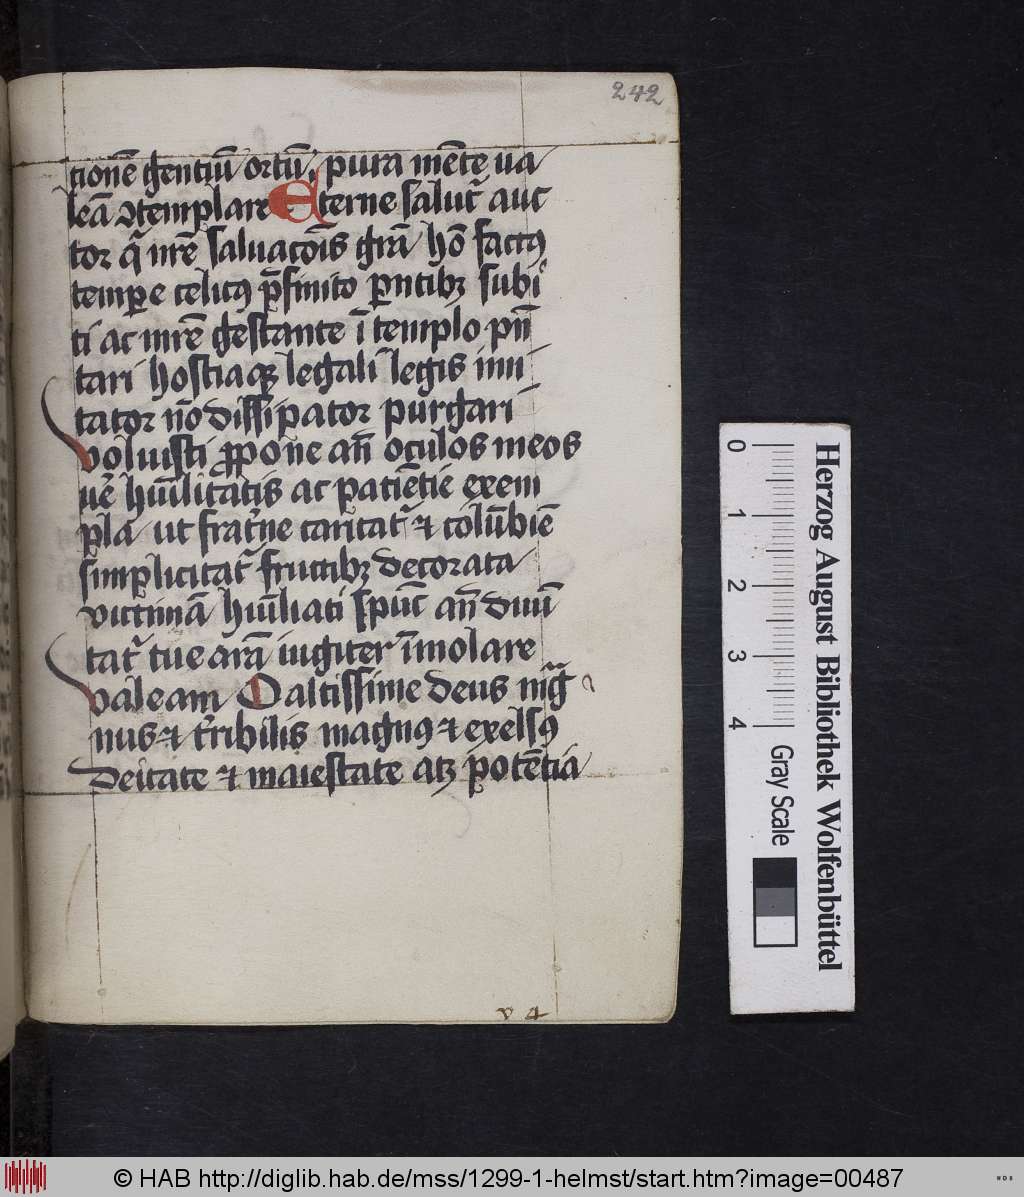 242
tionē gentiū ortū, pura mēte va
leā ꝯtemplare Eterne salut᷑ auc
tor q̄ nr̄e saluacōis gr̄a hō factꝰ
temꝑe celitꝰ p̄finito ꝑntibꝫ subi
ti ac mr̄e gestante ī templo pn̄
tari hostiaqꝫ legali legis imi
tator nō dissipator purgari
voluisti ꝓpone an̄ oculos meos
ve᷑ hūilitatis ac patiētie exem
pla ut frat᷑ne caritat᷑ ⁊ colūbine
simplicitat᷑ fructibꝫ decorata
victimā hūiliati spūs an̄ diuini
tat᷑ tue arā iugiter īmolare
valeam O altissime deus mag
nus ⁊ t᷑ribilis magnꝰ ⁊ exelsꝰ
deitate ⁊ maiestate atqꝫ potētia
v 4
Herzog August Bibliothek Wolfenbüttel
0 1 2 3 4 Gray Scale
© HAB http://diglib.hab.de/mss/1299-1-helmst/start.htm?image=00487